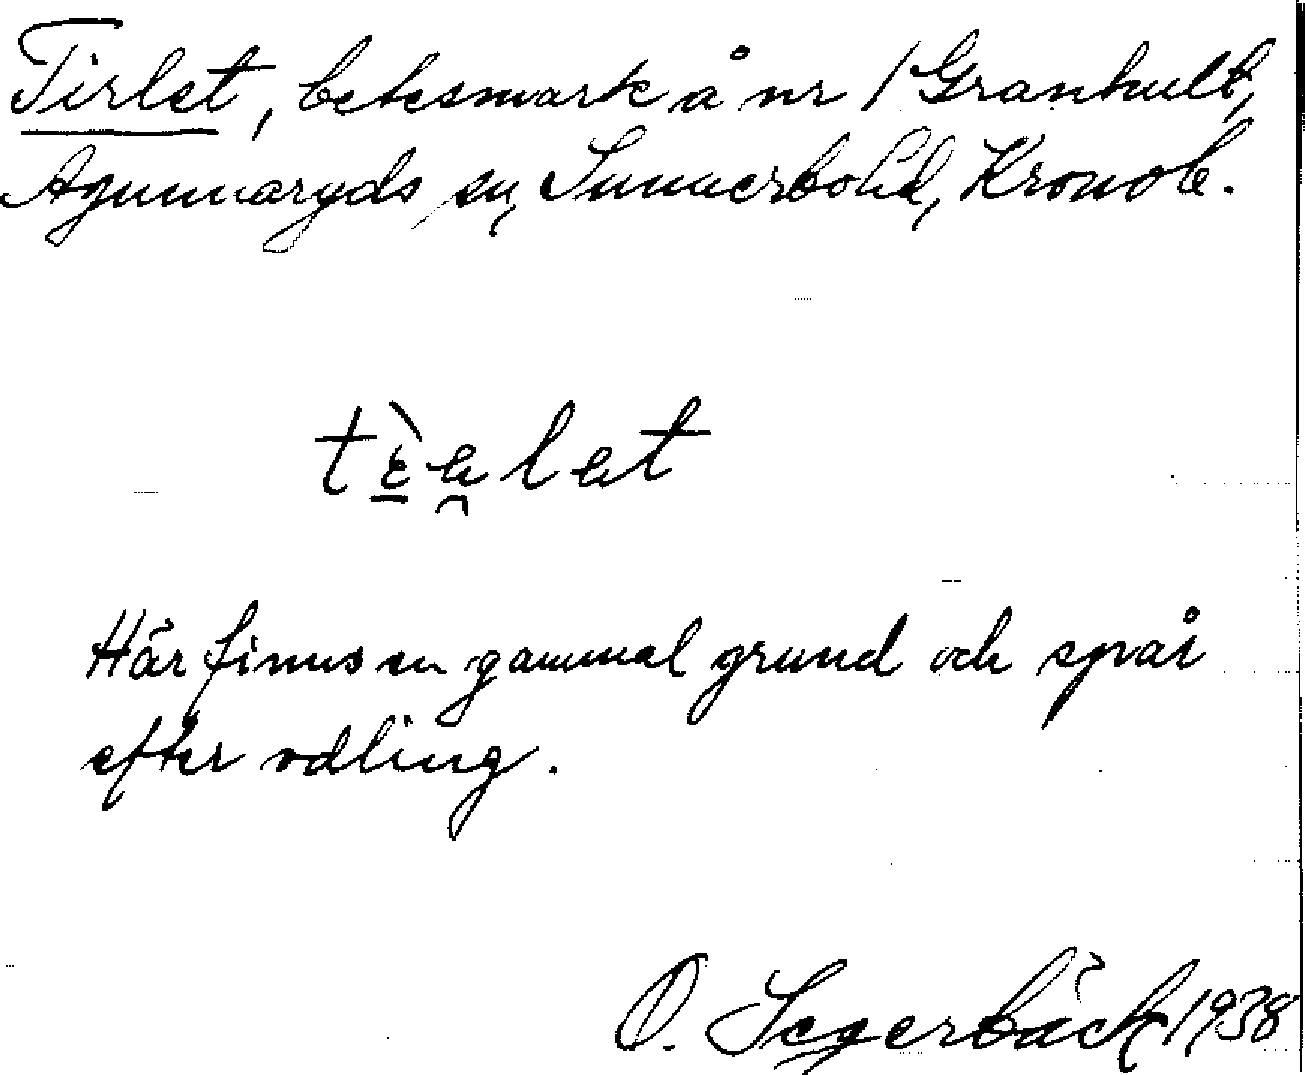 Tirlet, betesmark å nr 1 Granhult,
Agunnaryds sn, Sunnerbo hd, Kronob.
tɛ̀ə̯lət
Här finns en gammal grund och spår
efter odling.
O. Segerbäck 1938